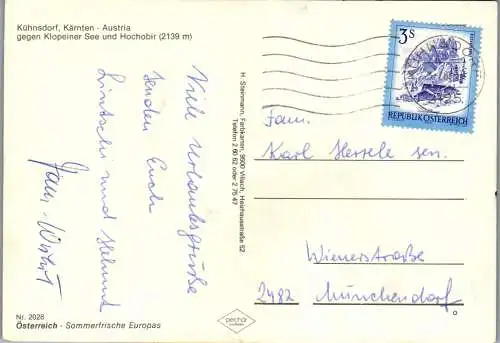 Kühnsdorf, Kärnten - Austria
gegen Klopeiner See und Hochobir (2139 m)
Viele Urlaubsgrüße
senden Euch
und Helmut
H. Steinmann, Farbkarten, 9500 Villach, Heidhausstraße 52
Telefon 2 60 62 oder 2 75 47
3S
REPUBLIK ÖSTERREICH
Fam.
Karl Hersele sen.
Wienerstraße
2482 Münchendorf
Nr. 2028
Österreich - Sommerfrische Europas